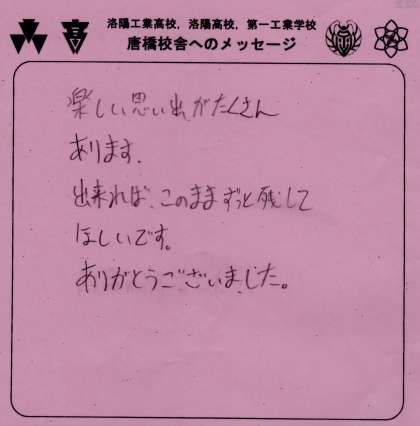 洛陽工業高校，洛陽高校，第一工業学校
唐橋校舎へのメッセージ
楽しい思い出がたくさん
あります.
出来れば、このままずっと残して
ほしいです。
ありがとうございました。